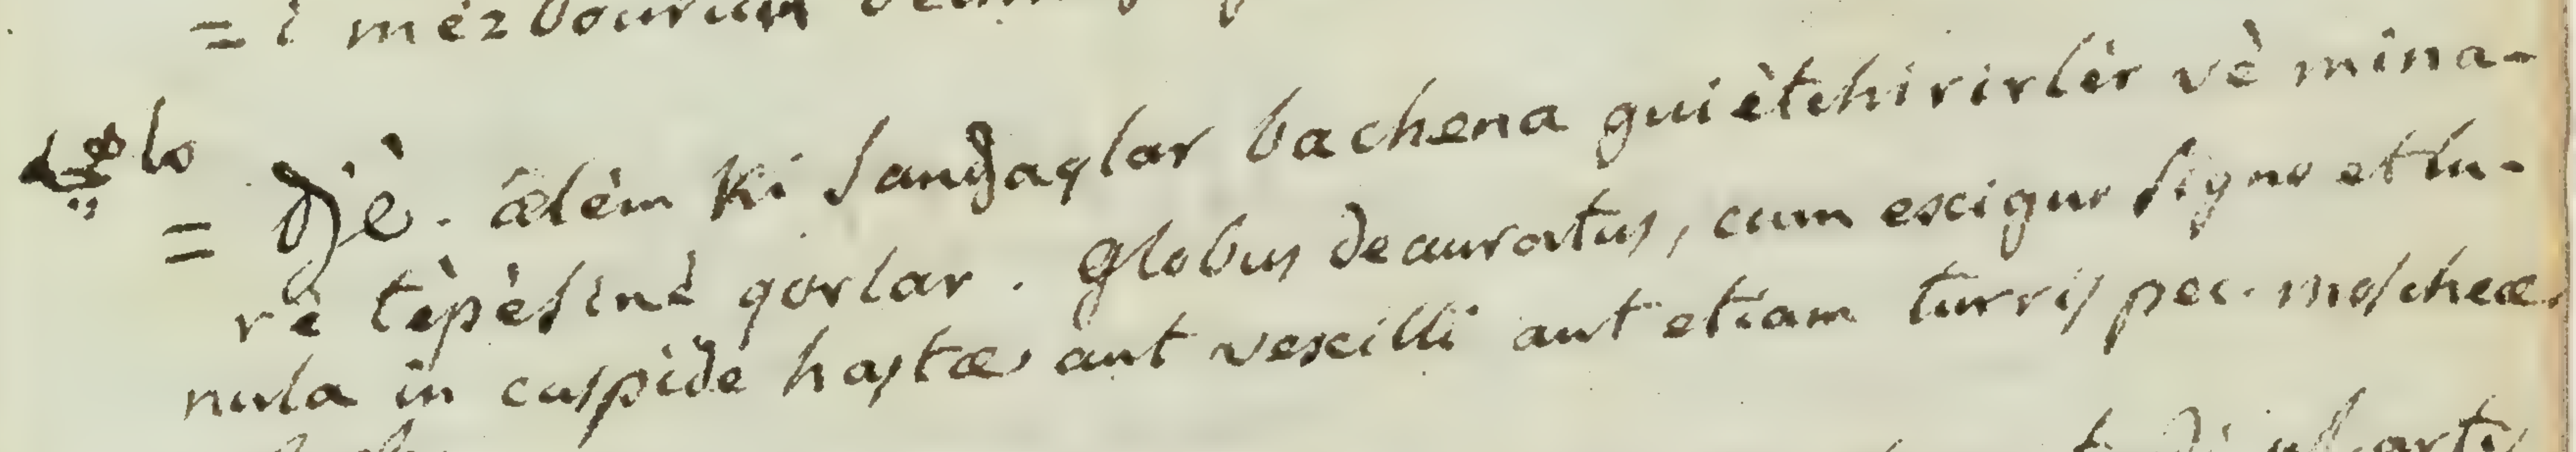 = i mèzbouruñ
lo
= Djè. ælèm ki sandjaqlar bachena guiètchirirlèr vè mina-
rè tèpèsinè qorlar. Globus deauratus, cum exiguo signo et lu-
nula in cuspide hastæ aut vexilli aut etiam turris pec. moscheæ.